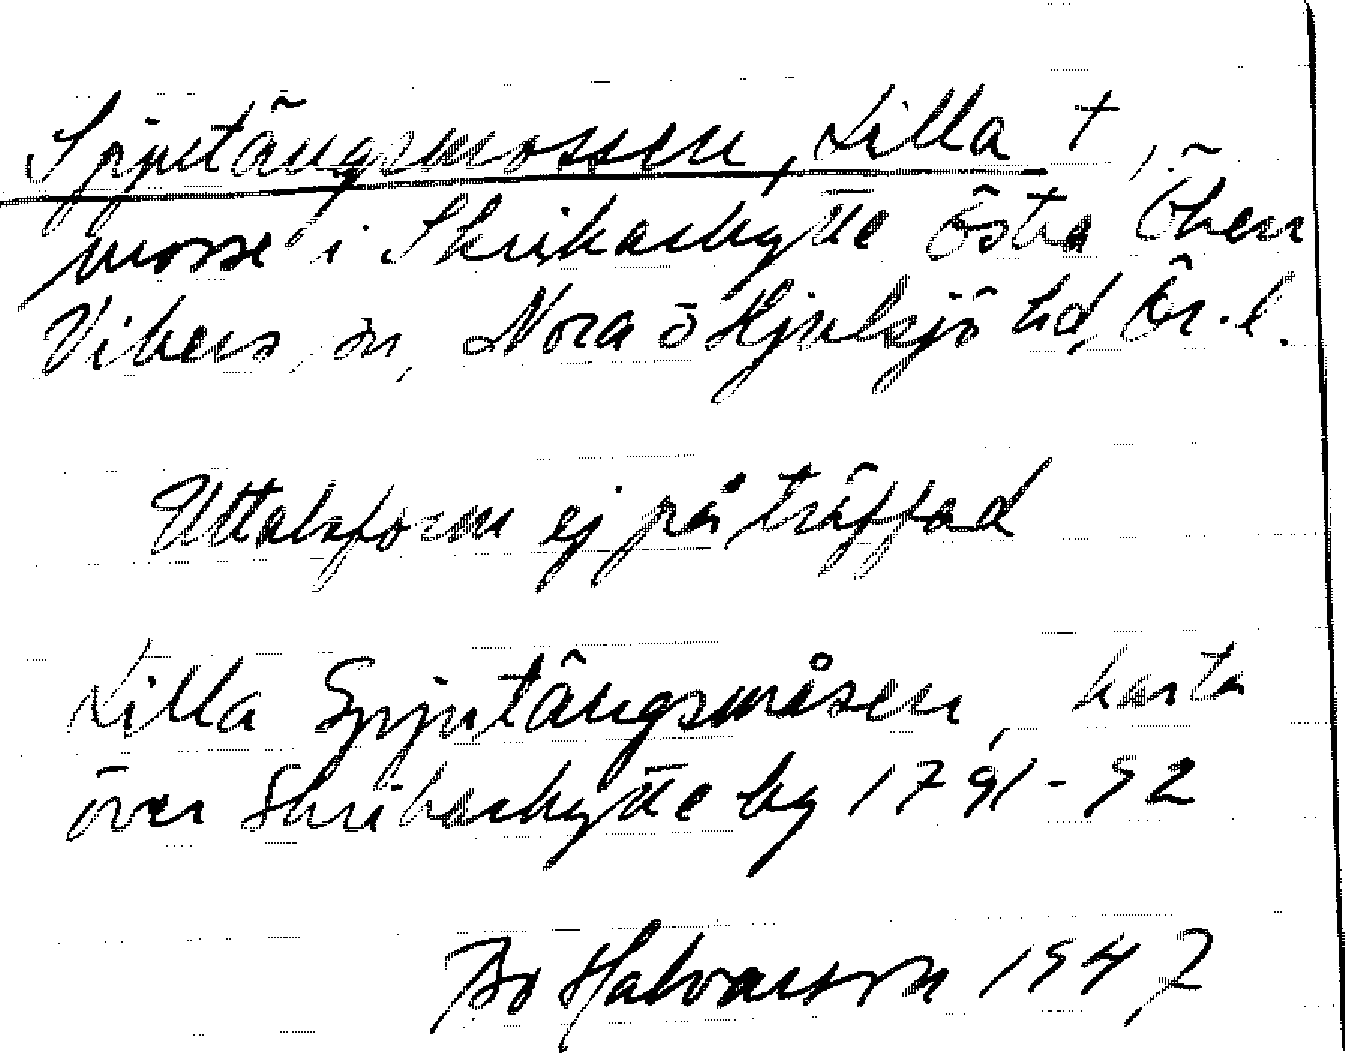 Spjutängsmossen, Lilla †,
mosse i Skrikarhytte östra, Öken
Vikers sn, Nora o Hjulsjö hd, Ör. l.
Uttalsform ej påträffad
Lilla Spjutängsmåsen, karta
över Skrikarhytte by 1791-92
Bo Halvarsson 1947